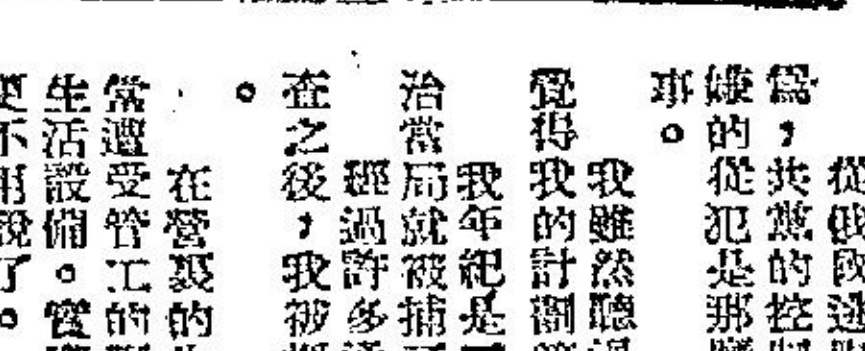 從俄國逃
為，共黨的控
嫌的從犯是那
事。
我雖然聽
覺得我的計劃
我年紀是
治當局就被捕
經過許多
查之後，我被
。
在營裏的
常遭受管工的
生活設備。實
更不用說了。